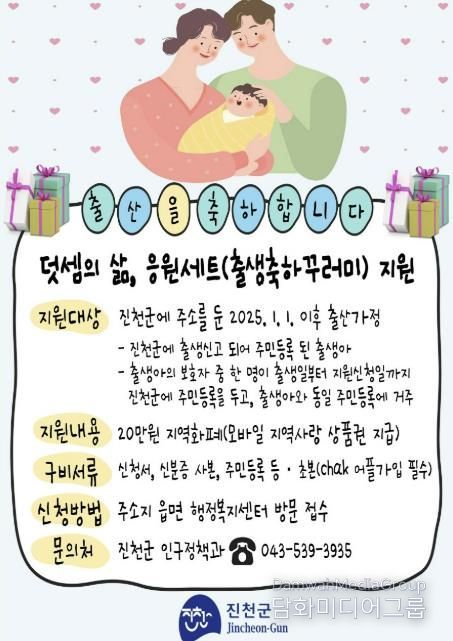 출산을 축하합니다
덧셈의 삶, 응원세트(출생축하꾸러미) 지원
지원대상 진천군에 주소를 둔 2025. 1. 1. 이후 출산가정
- 진천군에 출생신고 되어 주민등록 된 출생아
- 출생아의 보호자 중 한 명이 출생일부터 지원신청일까지
진천군에 주민등록을 두고, 출생아와 동일 주민등록에 거주
지원내용 20만원 지역화폐(모바일 지역사랑 상품권 지급)
구비서류 신청서, 신분증 사본, 주민등록 등·초본(chak 어플가입 필수)
신청방법 주소지 읍면 행정복지센터 방문 접수
문의처 진천군 인구정책과 ☎ 043-539-3935
DamwhaMediaGroup
담화미디어그룹
진천 진천군
Jincheon-Gun